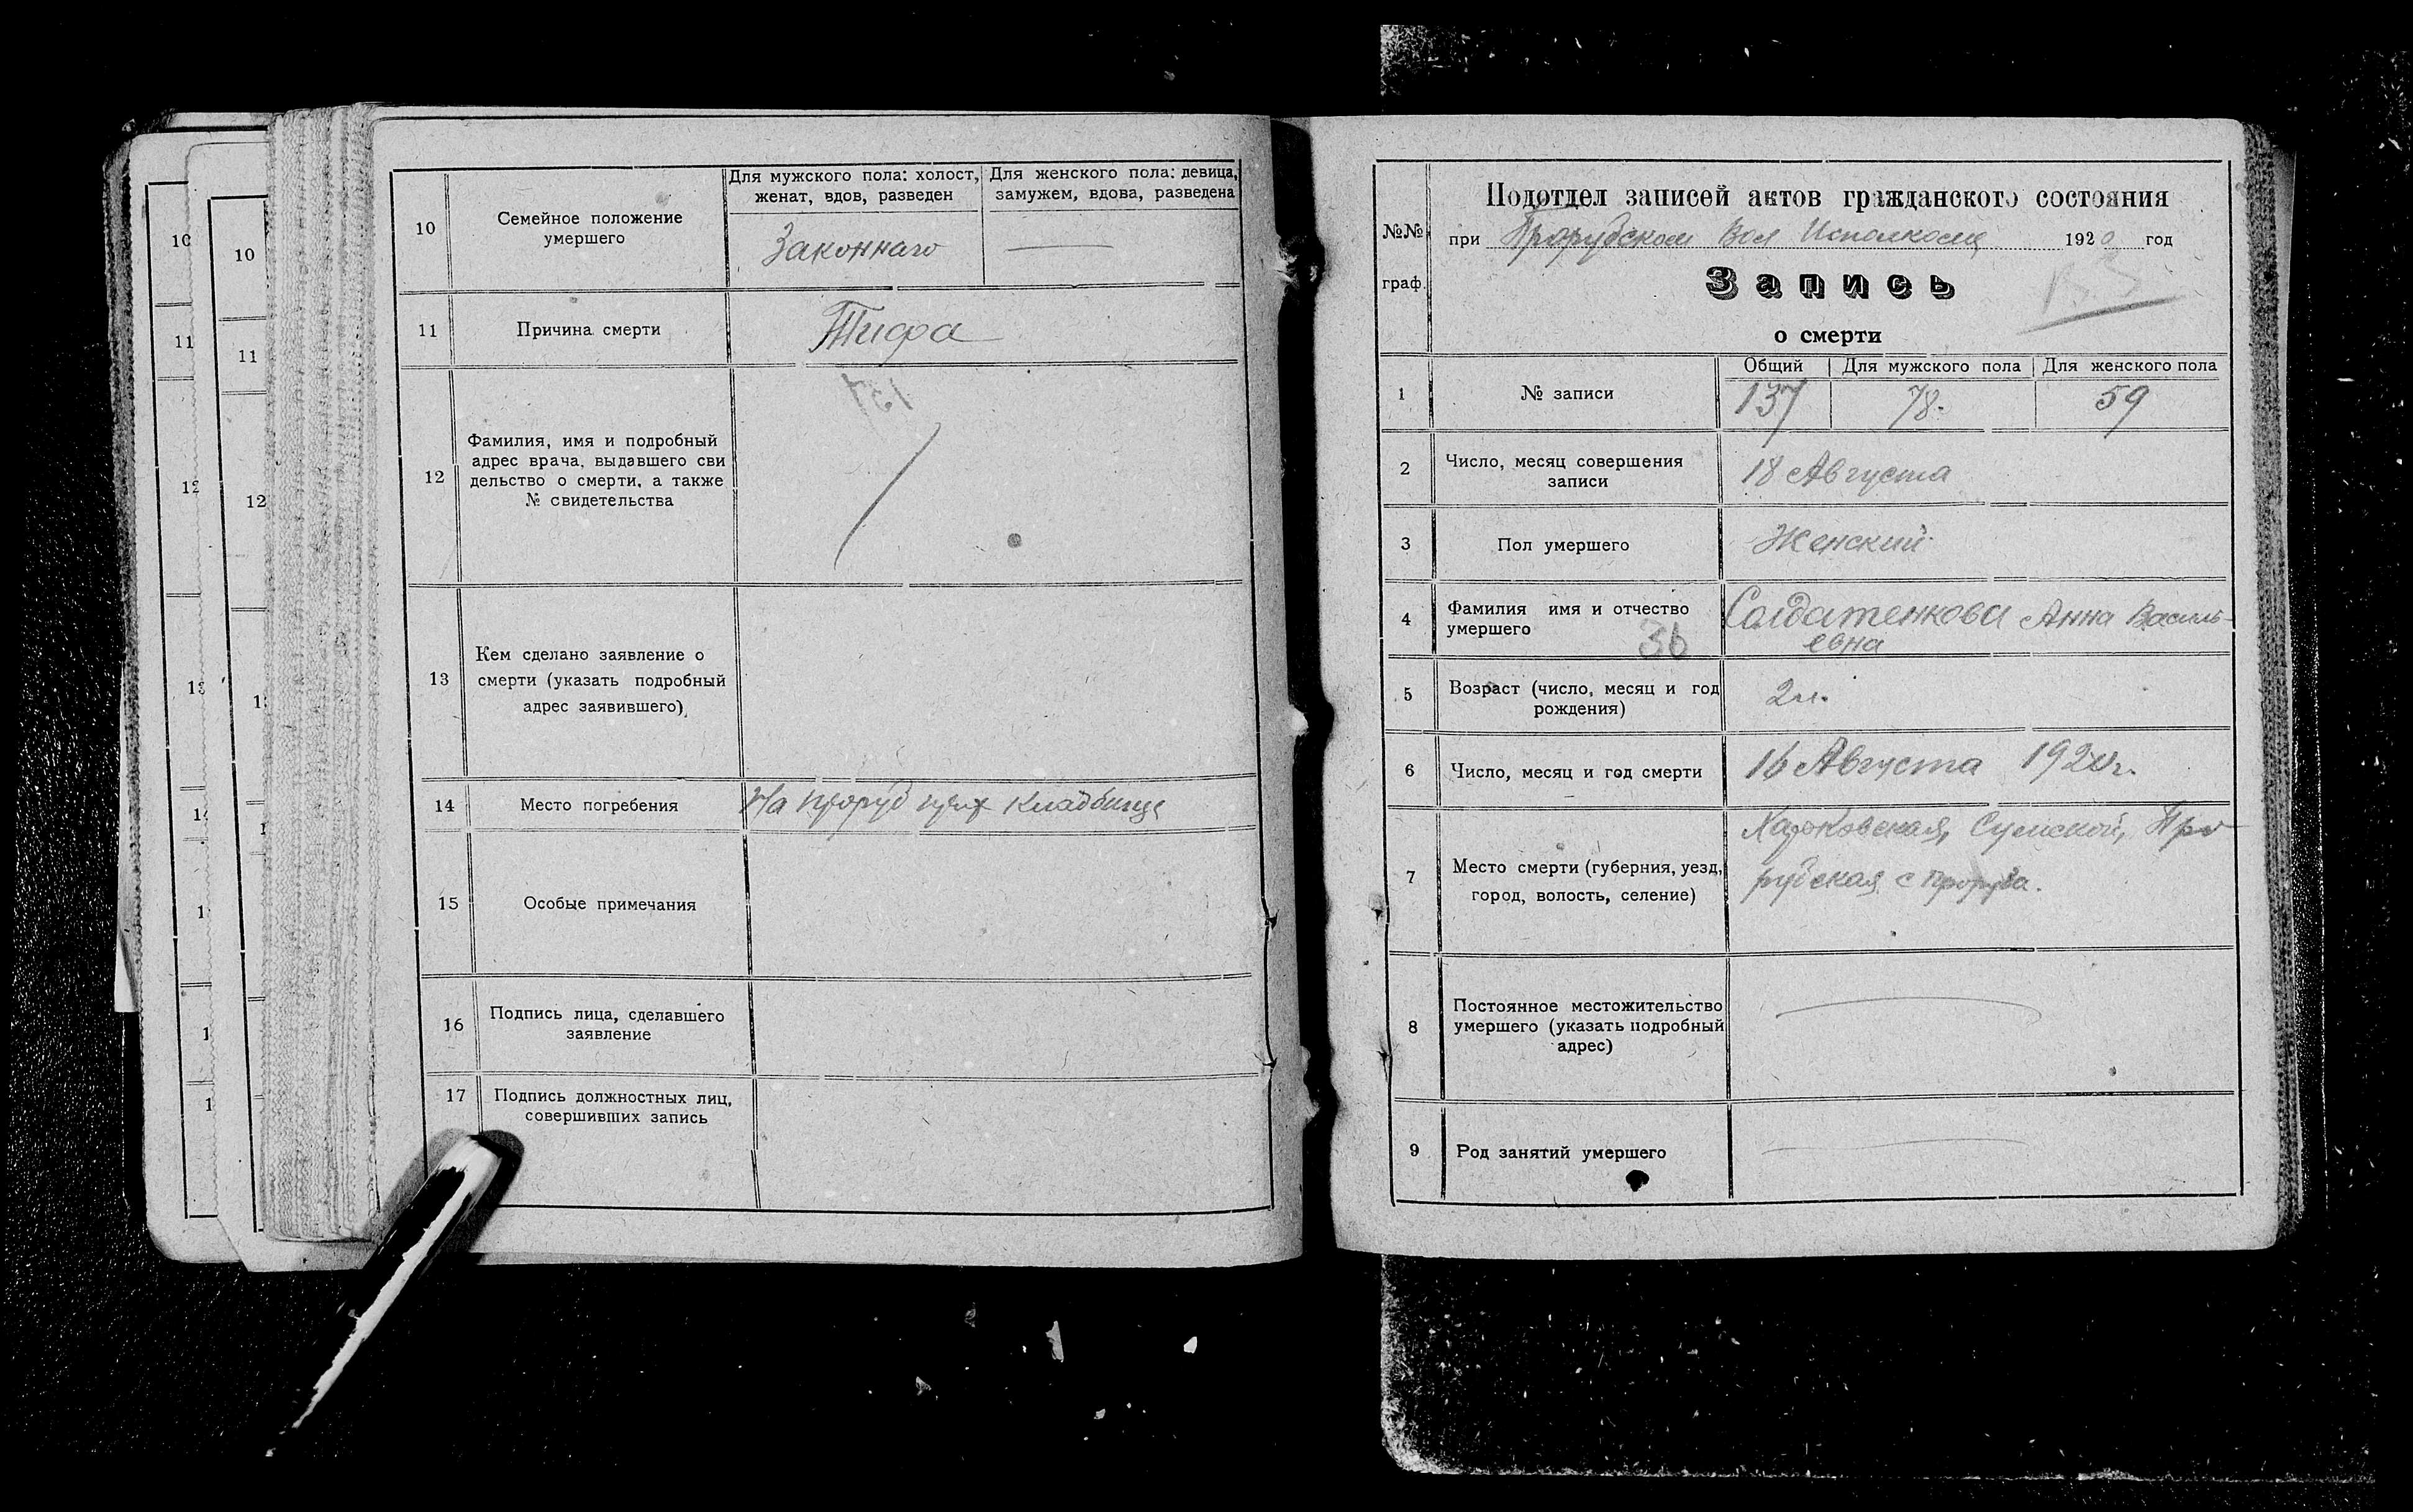 10
11
12
13
10
11
12
10
Семейное положение
умершего
Для мужского пола: холост,
женат, вдов, разведен
Для женского пола: девица,
замужем, вдова, разведена
Законнаго
11
Причина смерти
Тифа
12
Фамилия, имя и подробный
адрес врача, выдавшего сви
дельство о смерти, а также
№ свидетельства
137
13
Кем сделано заявление о
смерти (указать подробный
адрес заявившего)
14
Место погребения
На проруб прих кладбище
15
Особые примечания
16
Подпись лица, сделавшего
заявление
17
Подпись должностных лиц,
совершивших запись
№№
граф.
Подотдел записей актов гражданского состояния
при Прорубском Вол Исполкоме 1920 год
Запись
о смерти
1
№ записи
Общий
Для мужского пола
Для женского пола
137
78.
59
2
Число, месяц совершения
записи
18 Августа
3
Пол умершего
Женский
4
Фамилия имя и отчество
умершего
36
Солдатенкова Анна Василь-
евна
5
Возраст (число, месяц и год
рождения)
2 л.
6
Число, месяц и год смерти
16 Августа 1920 г.
7
Место смерти (губерния, уезд,
город, волость, селение)
Харковская, Сумской, Про
рубская с Проруба.
8
Постоянное местожительство
умершего (указать подробный
адрес)
9
Род занятий умершего